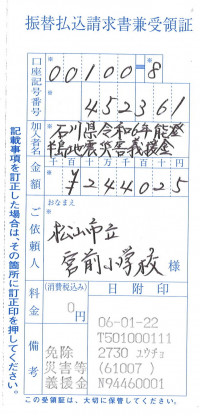 振替払込請求書兼受領証
口座記号番号
００１００－８
４５２３６１
加入者名
石川県令和6年能登
半島地震災害義援金
金額
千百十万千百十円
¥244025
ご依頼人
おなまえ
松山市立
宮前小学校 様
料金
(消費税込み)
0円
日附印
備考
免除
災害等
義援金
06-01-22
T501000111
2730 ユウチョ
(61007)
N94460001
記載事項を訂正した場合は、その箇所に訂正印を押してください。
この受領証は、大切に保管してください。